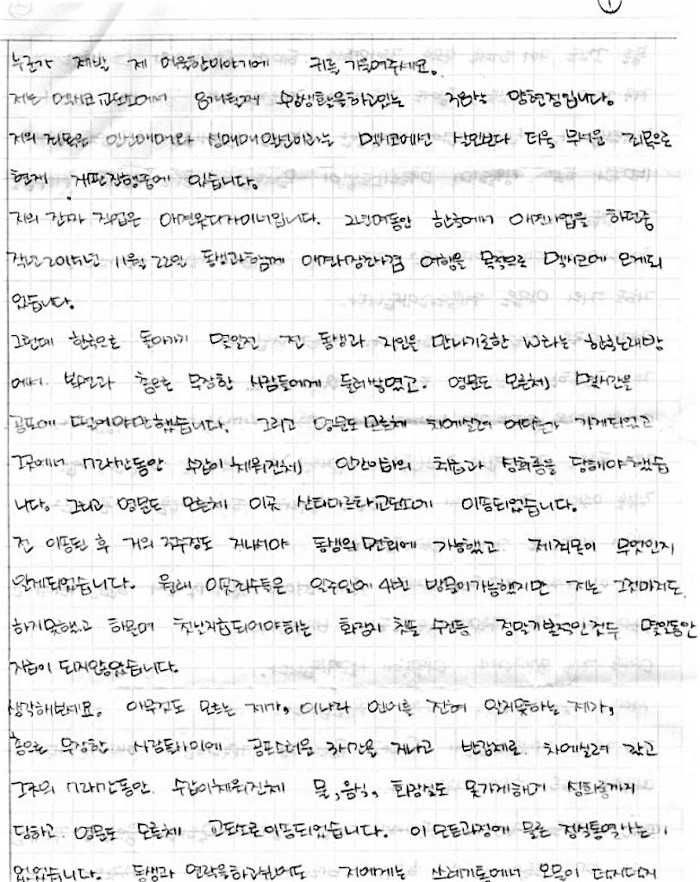 1
누군가 제발 제 억울한이야기에 귀를 기울여주세요.
저는 멕시코교도소에서 8개월째 수감생활을하고있는 38살 양현정입니다.
저의 죄목은 인신매매와 성매매알선이라는 멕시코에선 살인보다 더욱 무거운 죄목으로
현재 재판진행중에 있습니다.
저의 진짜 직업은 애견옷디자이너입니다. 2년여동안 한국에서 애견사업을 하던중
작년2015년 11월 22일 동생과함께 여행을 목적으로 멕시코에 오게되
었습니다.
그런데 한국으로 돌아가기 몇일전 전 동생과 지인을 만나기로한 W라는 한국노래방
에서 복면과 총으로 무장한 사람들에게 둘러쌓였고. 영문도 모른체 몇시간을
공포에 떨어야만했습니다. 그리고 영문도모른체 차에실려 어딘가 가게되었고
그곳에서 시간동안 수갑이채워진체 인간이하의 취급과 성희롱을 당해야했습
니다. 그리고 영문도 모른체 이곳 산타마르타교도소에 이송되었습니다.
전 이송된 후 거의 2주정도 지나서야 동생의면회에 가능했고 제죄목이 무엇인지
알게되었습니다. 원래 이곳죄수들은 일주일에 4번 방문이가능했지만 저는 그것마저도
하지못했고 하물며 첫날지급되어야하는 화장지 칫솔 수건등 정말기본적인것두 몇일동안
지급이 되지않았었습니다.
생각해보세요. 아무것도 모르는 제가, 이나라 언어를 전혀 알지못하는 제가,
총으로 무장한 사람들사이에 공포스러운 시간을 지나고 반강제로 차에실려 갔고
그곳의 시간동안. 수갑이채워진체 물,음식, 화장실도 못가게하며 성희롱까지
당하고 영문도 모른체 교도소로이송되었습니다. 이모든과정에 물론 정식통역사는
없었습니다. 동생과 연락을하고싶어도 저에게는 쓰레기통에서